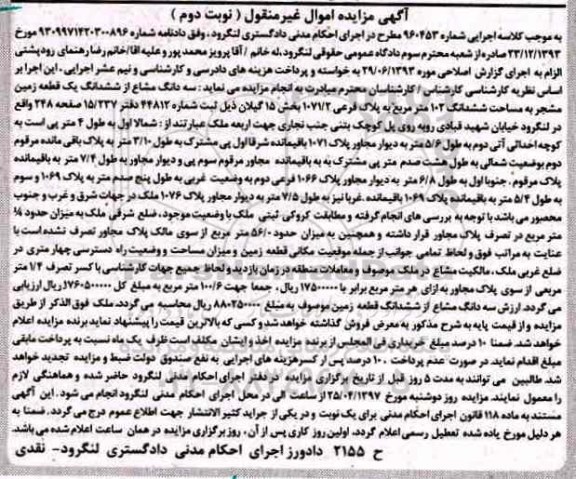 آگهی مزایده اموال غیرمنقول ( نوبت دوم )
به موجب کلاسه اجرایی شماره ۹۶۰۴۵۳ مطرح در اجرای احکام مدنی دادگستری لنگرود، وفق دادنامه شماره ۹۳۰۹۹۷۱۴۲۰۳۰۰۸۹۶ مورخ
۱۳۹۳/۱۲/۲۳ صادره از شعبه محترم سوم دادگاه عمومی حقوقی لنگرود، له خانم / آقا پرویز محمد پور و علیه آقا/خانم رضا رهنمای رودپشتی
الزام به اجرای گزارش اصلاحی مورخه ۱۳۹۳/۰۶/۲۹ به خواسته و پرداخت هزینه های دادرسی و کارشناسی و نیم عشر اجرایی، این اجرا بر
اساس نظریه کارشناسی کارشناس / کارشناسان محترم مبادرت به انجام مزایده می نماید : سه دانگ مشاع از ششدانگ یک قطعه زمین
مشجر به مساحت ششدانگ ۱۰۲ متر مربع به پلاک فرعی ۱۰۷۱/۲ بخش ۱۵ گیلان ذیل ثبت شماره ۴۴۸۱۲ دفتر ۱۵/۲۳۷ صفحه ۲۴۸ واقع
در لنگرود خیابان شهید قبادی روبه روی پل کوچک بتنی جنب نجاری جهت اربعه ملک عبارتند از : شمالا اول به طول ۴ متر پی است به
کوچه احداثی آتی دوم به طول ۵/۶ متر به دیوار مجاور پلاک ۱۰۷۱ باقیمانده شرقا اول پی مشترک به طول ۳/۱۰ متر به پلاک باقی مانده مرقوم
دوم بوضعیت شمالی به طول هشت صدم متر پی مشترک به به باقیمانده مجاور مرقوم سوم پی و دیوار مجاور به طول ۷/۴ متر به باقیمانده
پلاک مرقوم . جنوبا اول به طول ۶/۸ متر به دیوار مجاور پلاک ۱۰۶۶ فرعی دوم به وضعیت غربی به طول پنج صدم متر به پلاک ۱۰۶۹ و سوم
به طول ۵/۴ متر به باقیمانده پلاک ۱۰۶۹ باقیمانده .غربا نیز به طول ۷/۵ متر به دیوار مجاور پلاک ۱۰۷۶ ملک در جهات شرق و غرب و جنوب
محصور می باشد با توجه به بررسی های انجام گرفته و مطابقت کروکی ثبتی ملک با وضعیت موجود، ضلع شرقی ملک به میزان حدود
متر مربع در تصرف پلاک مجاور قرار داشته و همچنین به میزان حدود ۵۶/۰ متر مربع از سوی مالک پلاک مجاور تصرف نشده است با
عنایت به مراتب فوق و لحاظ تمامی جوانب از جمله موقعیت مکانی قطعه زمین و میزان مساحت و وضعیت راه دسترسی چهار متری در
ضلع غربی ملک، مالکیت مشاع در ملک موصوف و معاملات منطقه در زمان بازدید و لحاظ جمیع جهات کارشناسی با کسر تصرف ۱/۴ متر
مربعی از سوی پلاک مجاور به ازای هر متر مربع برابر با ۱۷۵۰۰۰۰۰ ریال ، جمعا جهت ۱۰۰/۶ متر مربع به مبلغ کل ۱۷۶۰۵۰۰۰۰۰ ریال ارزیابی
می گردد. ارزش سه دانگ مشاع از ششدانگ قطعه زمین موصوف به مبلغ ۸۸۰۲۵۰۰۰۰ ریال محاسبه می گردد. ملک فوق الذکر از طریق
مزایده و از قیمت پایه به شرح مذکور به معرض فروش گذاشته خواهد شد و کسی که بالاترین قیمت را پیشنهاد نماید برنده مزایده اعلام
خواهد شد. ضمنا ۱۰ درصد مبلغ خریداری فی المجلس از برنده مزایده اخذ و ایشان مکلف است ظرف یک ماه نسبت به پرداخت مابقی
مبلغ اقدام نماید. در صورت عدم پرداخت ، ۱۰ درصد پس از کسر هزینه های اجرایی به نفع صندوق دولت ضبط و مزایده تجدید خواهد
شد. طالبین می توانند به مدت ۵ روز قبل از تاریخ برگزاری مزایده در دفتر اجرای احکام مدنی لنگرود حاضر شده و هماهنگی لازم
را معمول نمایند. مزایده روز دوشنبه مورخ ۱۳۹۷/۰۴/۲۵ از ساعت الی در محل اجرای احکام مدنی لنگرود انجام می شود . این آگهی
مستند به ماده ۱۱۸ قانون اجرای احکام مدنی برای یک نوبت و در یکی از جراید کثیر الانتشار جهت اطلاع عموم درج می گردد. ضمنا به
هر دلیل مورخ یاده شده تعطیل رسمی اعلام گردد، اولین روز کاری پس از آن ، روز برگزاری مزایده در همان ساعت اعلام شده می باشد.
ح ۲۱۵۵ دادورز اجرای احکام مدنی دادگستری لنگرود- نقدی